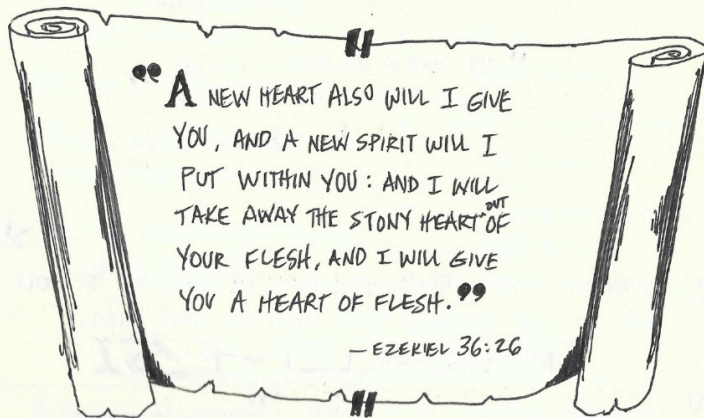 "A NEW HEART ALSO WILL I GIVE
YOU, AND A NEW SPIRIT WILL I
PUT WITHIN YOU: AND I WILL
TAKE AWAY THE STONY HEART OUT OF
YOUR FLESH, AND I WILL GIVE
YOU A HEART OF FLESH."
— EZEKIEL 36:26